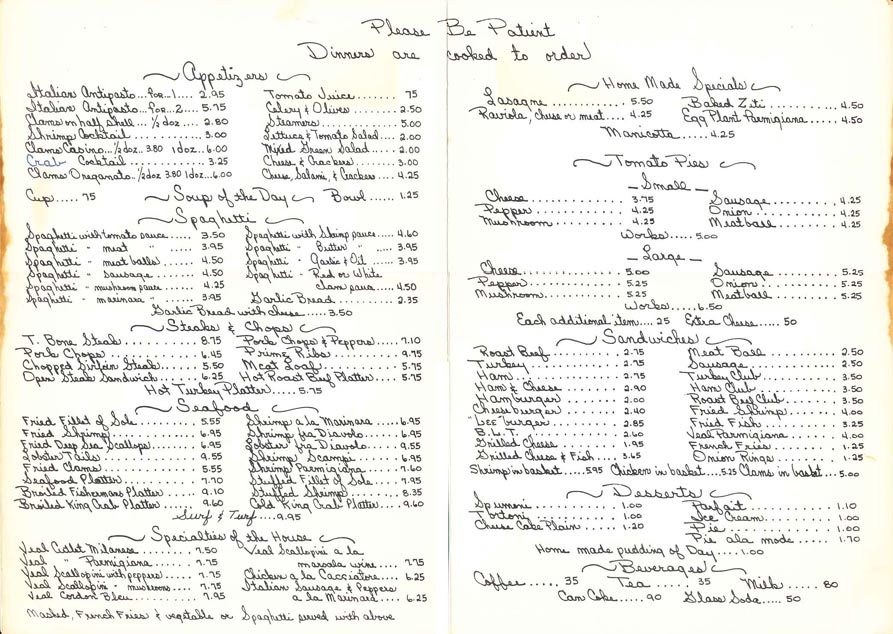 Please Be Patient
Dinners are cooked to order
Appetizers
Italian Antipasto...For...1.... 2.95
Italian Antipasto...For...2.... 5.75
Clams on half shell... ½ doz... 2.80
Shrimp Cocktail............ 3.00
Clams Casino...½ doz.. 3.80 1 doz...6.00
Crab Cocktail............ 3.25
Clams Oreganato..½ doz 3.80 1 doz...6.00
Tomato Juice........ 75
Celery & Olives....... 2.50
Steamers.......... 5.00
Lettuce & Tomato Salad.... 2.00
Mixed Green Salad.... 2.00
Cheese & Crackers....... 3.00
Cheese, Salami, & Crackers.... 4.25
Cup..... 75 Soup of the Day Bowl..... 1.25
Spaghetti
Spaghetti with tomato sauce.... 3.50
Spaghetti - meat " .... 3.95
Spaghetti - meat balls..... 4.50
Spaghetti " sausage..... 4.50
Spaghetti - mushroom sauce.... 4.25
Spaghetti - marinara " .... 3.95
Spaghetti with Shrimp sauce.... 4.60
Spaghetti - Butter " .... 3.95
Spaghetti - Garlic & Oil .... 3.95
Spaghetti - Red or White
Clam sauce.... 4.50
Garlic Bread......... 2.35
Garlic Bread with cheese..... 3.50
Steaks & Chops
T. Bone Steak............ 8.75
Pork Chops............ 6.45
Chopped Sirloin Steak....... 5.50
Open Steak Sandwich....... 6.25
Pork Chops & Peppers..... 7.10
Prime Ribs......... 9.75
Meat Loaf.......... 5.75
Hot Roast Beef Platter.... 5.75
Hot Turkey Platter..... 5.75
Seafood
Fried Fillet of Sole......... 5.55
Fried Shrimp............ 6.95
Fried Deep Sea Scallops....... 6.95
Lobster Tails........... 9.55
Fried Clams............ 5.55
Seafood Platter.......... 7.70
Broiled Fishermans Platter..... 9.10
Broiled King Crab Platter...... 9.60
Shrimp a la Marinara.....6.95
Shrimp fra Diavolo.....6.95
Lobster fra Diavolo.....9.55
Shrimp Scampi........6.95
Shrimp Parmigiana.....7.60
Stuffed Fillet of Sole....7.95
Stuffed Shrimp.......8.35
Cold King Crab Platter....9.60
Surf & Turf....9.95
Specialties of the House
Veal Cutlet Milanese........ 7.50
Veal " Parmigiana....... 7.75
Veal Scallopini with peppers..... 7.75
Veal Scallopini - mushrooms.... 7.75
Veal Cordon Bleu.......... 7.95
Veal Scallopini a la
marsala wine.... 7.75
Chicken a la Cacciatore.... 6.25
Italian Sausage & Peppers
a la Marinara.... 6.25
Mashed, French Fries & vegetable or Spaghetti served with above
Home Made Specials
Lasagne............ 5.50
Raviola, cheese or meat.... 4.25
Baked Ziti......... 4.50
Egg Plant Parmigiana.... 4.50
Manicotta.... 4.25
Tomato Pies
Small
Cheese............ 3.75
Pepper............ 4.25
Mushroom.......... 4.25
Sausage........... 4.25
Onion............ 4.25
Meatball.......... 4.25
Works..... 5.00
Large
Cheese............ 5.00
Pepper............ 5.25
Mushroom.......... 5.25
Sausage........... 5.25
Onion............ 5.25
Meatball.......... 5.25
Works..... 6.50
Each additional item.... 25 Extra Cheese.... 50
Sandwiches
Roast Beef......... 2.75
Turkey............ 2.75
Ham............ 2.75
Ham & Cheese........ 2.90
Hamburger......... 2.00
Cheeseburger........ 2.40
"Lee" burger......... 2.85
B.L.T............. 2.60
Grilled Cheese........ 1.95
Grilled Cheese & Fish.... 3.65
Meat Ball......... 2.50
Sausage........... 2.50
Turkey Club........ 3.50
Ham Club.......... 3.50
Roast Beef Club....... 3.50
Fried Shrimp........ 4.00
Fried Fish.......... 3.25
Veal Parmigiana....... 4.00
French Fries......... 1.25
Onion Rings......... 1.25
Shrimp in basket....5.95 Chicken in basket....5.25 Clams in basket... 5.00
Desserts
Spumoni............ 1.00
Tortoni............ 1.00
Cheese Cake Plain..... 1.20
Parfait............ 1.10
Ice Cream.......... 1.00
Pie............. 1.00
Pie ala mode....... 1.70
Home made pudding of Day.... 1.00
Beverages
Coffee...... 35 Tea...... 35 Milk..... 80
Can Coke..... 90 Glass Soda..... 50